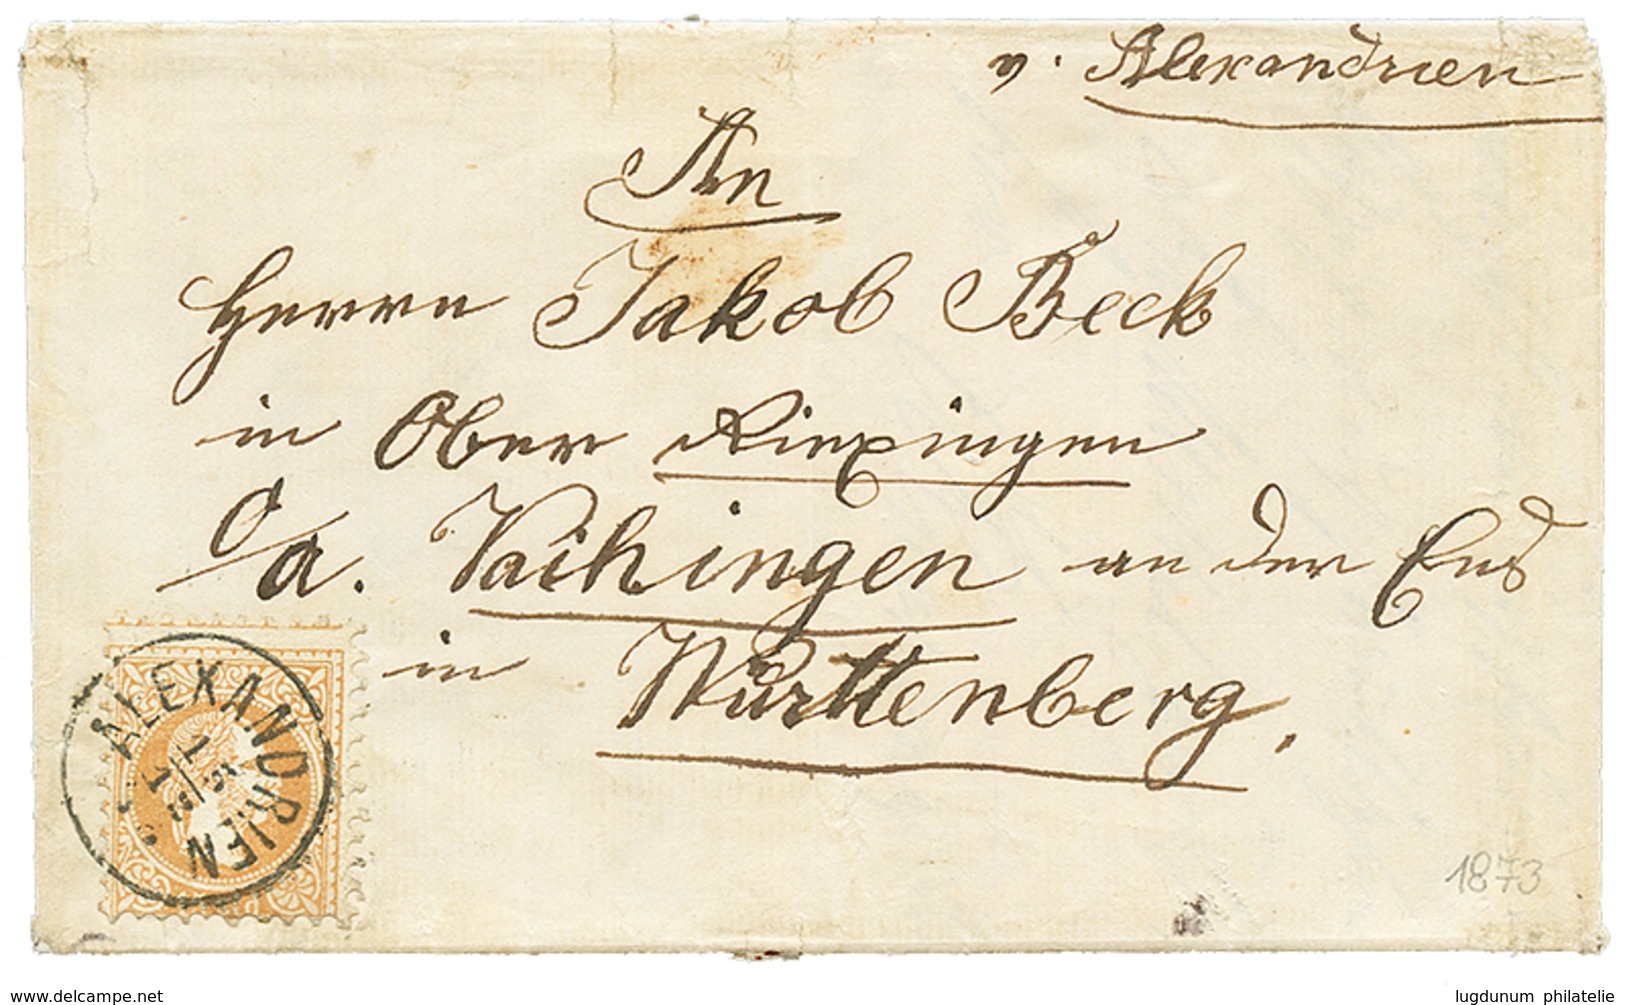 v. Alexandrien
An
Herrn Jakob Beck
in Ober Riexingen
O/a. Vaihingen an der Enz
in Württenberg.
ALEXANDRIEN
1873
delcampe.net
lugdunum philatelie